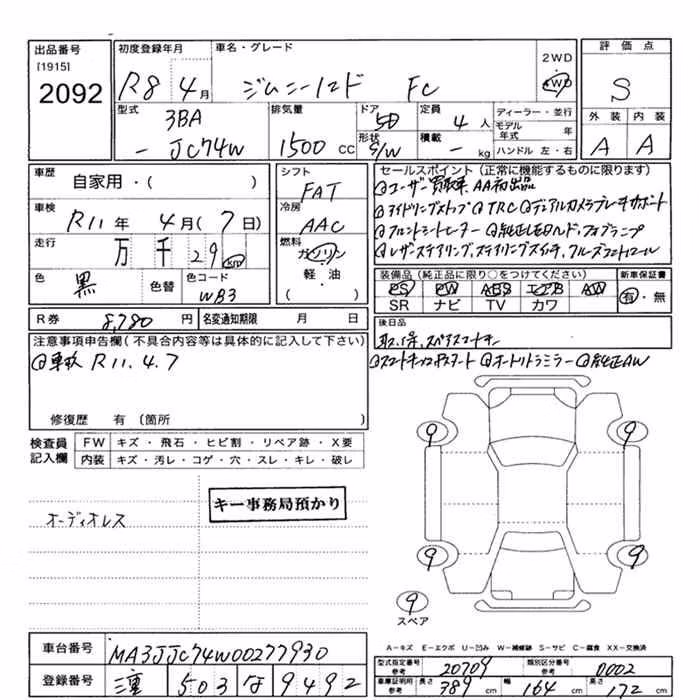 出品番号
[1915]
2092
初度登録年月
R8 4月
車名・グレード
ジムニーノマド FC
2WD
4WD
評価点
S
外装 内装
A A
型式
3BA
- JC74W
排気量
1500 CC
ドア
5D
形状
S/W
定員
4 人
積載
- kg
ディーラー・並行
モデル年式 年
ハンドル 左・右
車歴
自家用・( )
車検
R11年 4月(7日)
走行
万 千 29 km
色
黒
色替
色コード
WB3
シフト
FAT
冷房
AAC
燃料
ガソリン
軽・油
( )
セールスポイント(正常に機能するものに限ります)
@ユーザー買取車、AA初出品
@アイドリングストップ @TRC @デュアルカメラブレーキサポート
@フロントシートヒーター @純正LEDヘッド、フォグランプ
@レザーステアリング、ステアリングスイッチ、クルーズコントロール
装備品(純正品に限り○をつけてください)
PS PW ABS エアB AW
SR ナビ TV カワ
新車保証書
有・無
R券 8,780 円
名変通知期限 月 日
後日品
取、保、スペアスマートキー
注意事項申告欄(不具合内容等は具体的に記入して下さい)
@車検 R11.4.7
@スマートキープッシュスタート @オートリトラミラー @純正AW
修復歴 有(箇所
検査員
記入欄
FW キズ・飛石・ヒビ割・リペア跡・X要
内装 キズ・汚レ・コゲ・穴・スレ・キレ・破レ
キー事務局預かり
オーディオレス
9 9
9 9
9
スペア
A-キズ E-エクボ U-凹み W-補修跡 S-サビ C-腐食 XX-交換済
車台番号 MA3JJC74W00277930
登録番号 503 な 9492
型式指定番号
参考 20709
類別区分番号
参考 0002
車庫証明用
参考 長さ 389 cm 幅 164 cm 高さ 172 cm